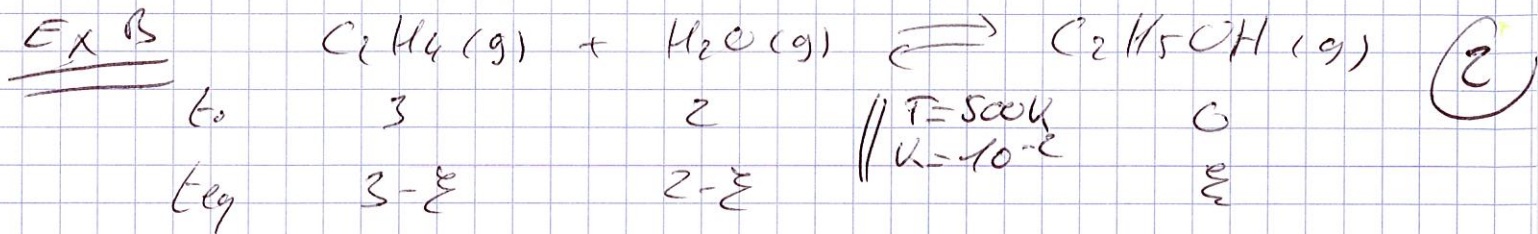 Ex B C₂H₄(g) + H₂O(g) ⇌ C₂H₅OH (g) 2
t₀ 3 2 || T=500K 0
K=10⁻²
teq 3-ξ 2-ξ ξ